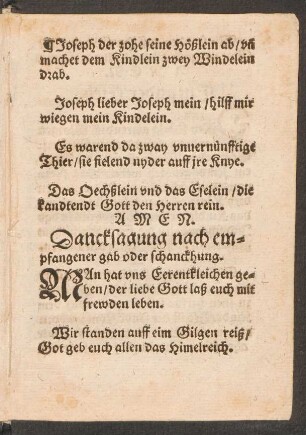 ¶Joseph der zohe seine Hößlein ab/vñ
machet dem Kindlein zwey Windelein
drab.
Joseph lieber Joseph mein/hilff mir
wiegen mein Kindelein.
Es warend da zway vnuernünfftige
Thier/sie fielend nyder auff jre Knye.
Das Oechßlein vnd das Eselein/die
kandtendt Gott den Herren rein.
A M E N.
Dancksagung nach em-
pfangener gab oder schanckhung.
MAn hat vns Eerentkleichen ge-
ben/der liebe Gott laß euch mit
frewden leben.
Wir standen auff eim Gilgen reiß/
Got geb euch allen das Himelreich.